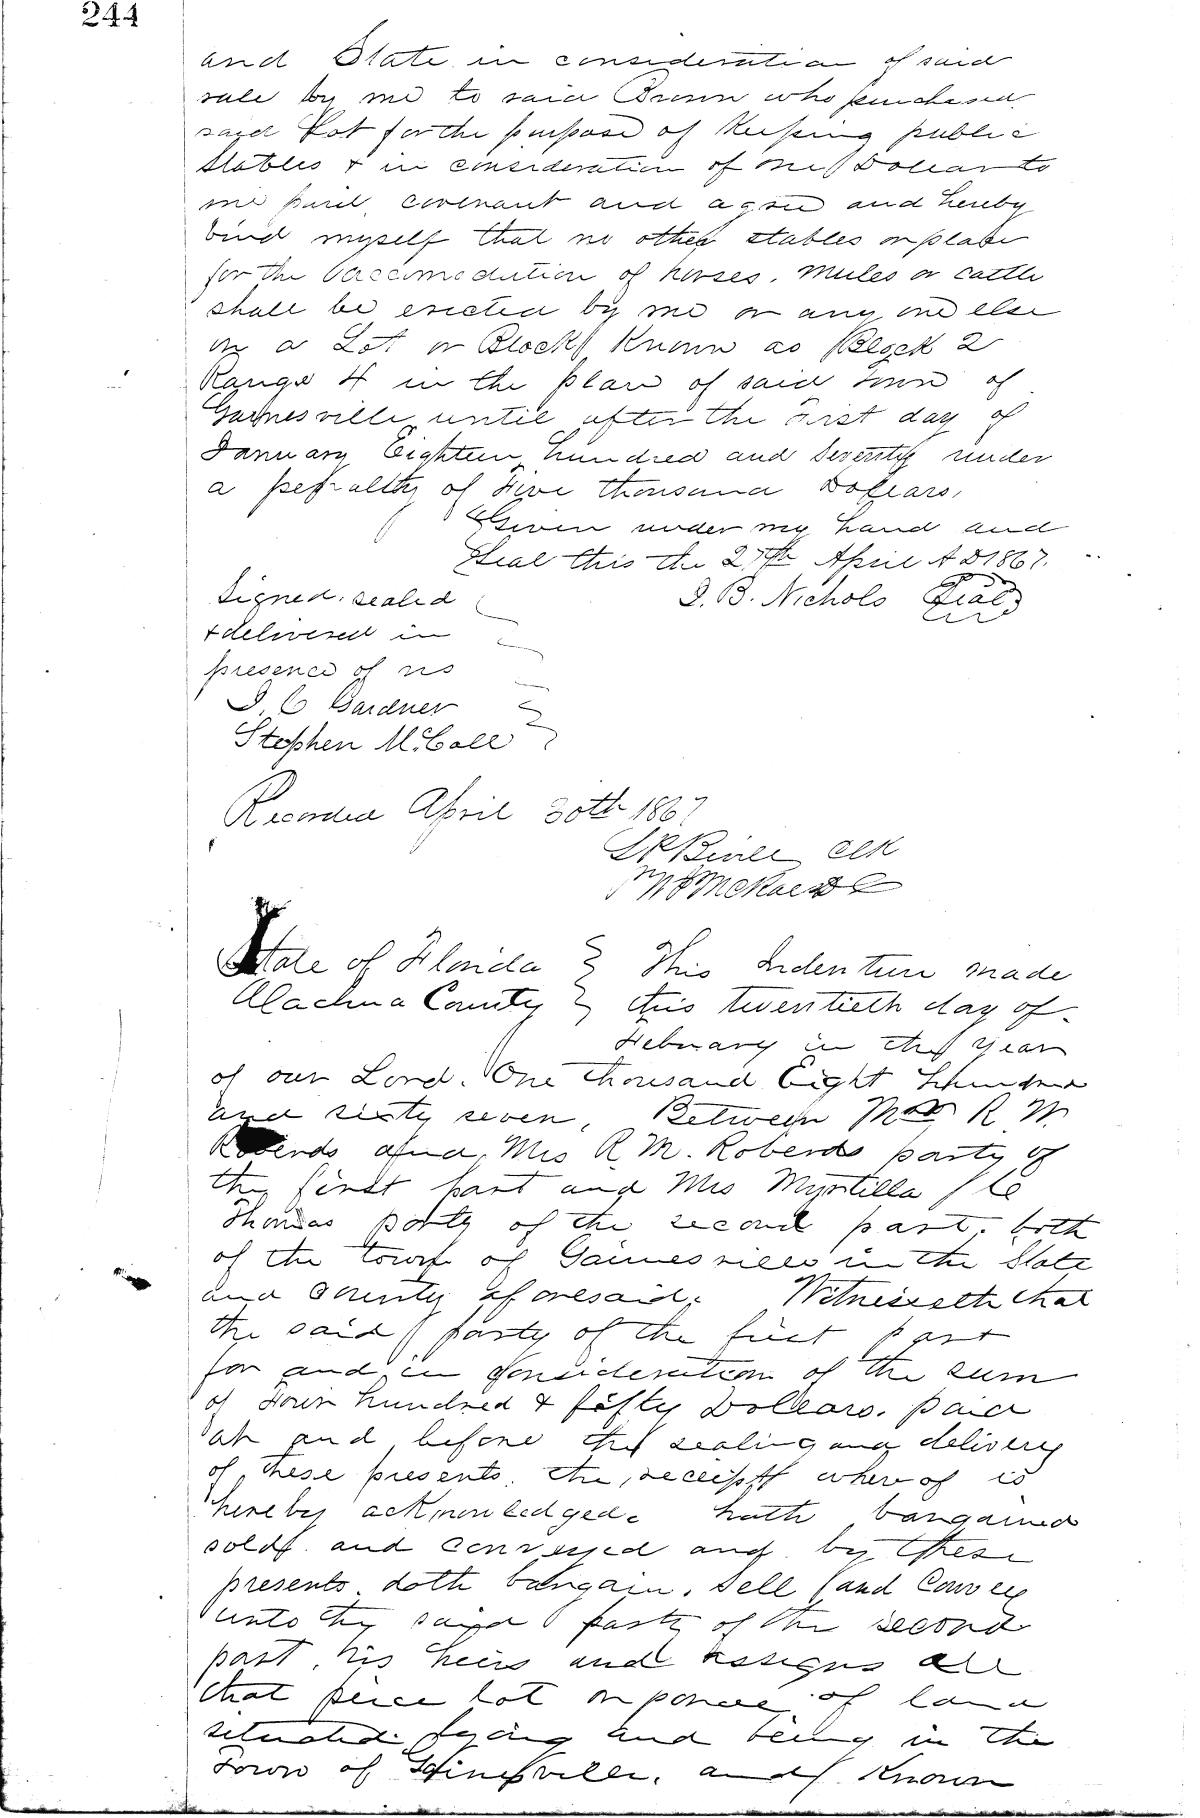 244
and State in consideration of said
sale by me to said Brown who purchased
said Lot for the purpose of Keeping public
Stables & in consideration of one Dollar to
me paid, covenant and agree and hereby
bind myself that no other stables or place
for the accomodation of horses, mules or cattle
shall be erected by me or any one else
on a Lot or Block Known as Block 2
Range 4 in the plan of said Town of
Gainesville until after the First day of
January Eighteen hundred and Seventy under
a penalty of Five thousand Dollars,
Given under my hand and
Seal this the 27th April A D 1867.
Signed, sealed
I. B. Nichols Seal
& delivered in
presence of us
J. C Gardner
Stephen McCall
Recorded April 30th 1867
Clk
McRae D C
State of Florida This Indenture made
Alachua County this twentieth day of
February in the year
of our Lord. One thousand Eight hundred
and sixty seven, Between R. W.
Roberds and Mrs R. M. Roberds party of
the first part and Mrs Myrtilla C
Thomas party of the second part, both
of the town of Gainesville in the State
and County aforesaid. Witnesseth that
the said party of the first part
for and in consideration of the sum
of Four hundred & fifty Dollars. paid
at and before the sealing and delivery
of these presents, the receipt where of is
hereby acknowledged. hath bargained
sold and conveyed and by these
presents doth bargain, Sell and Convey
unto the said party of the second
part, his heirs and assigns all
that peice lot or parcel of land
situated lying and being in the
Town of Gainesville. and Known